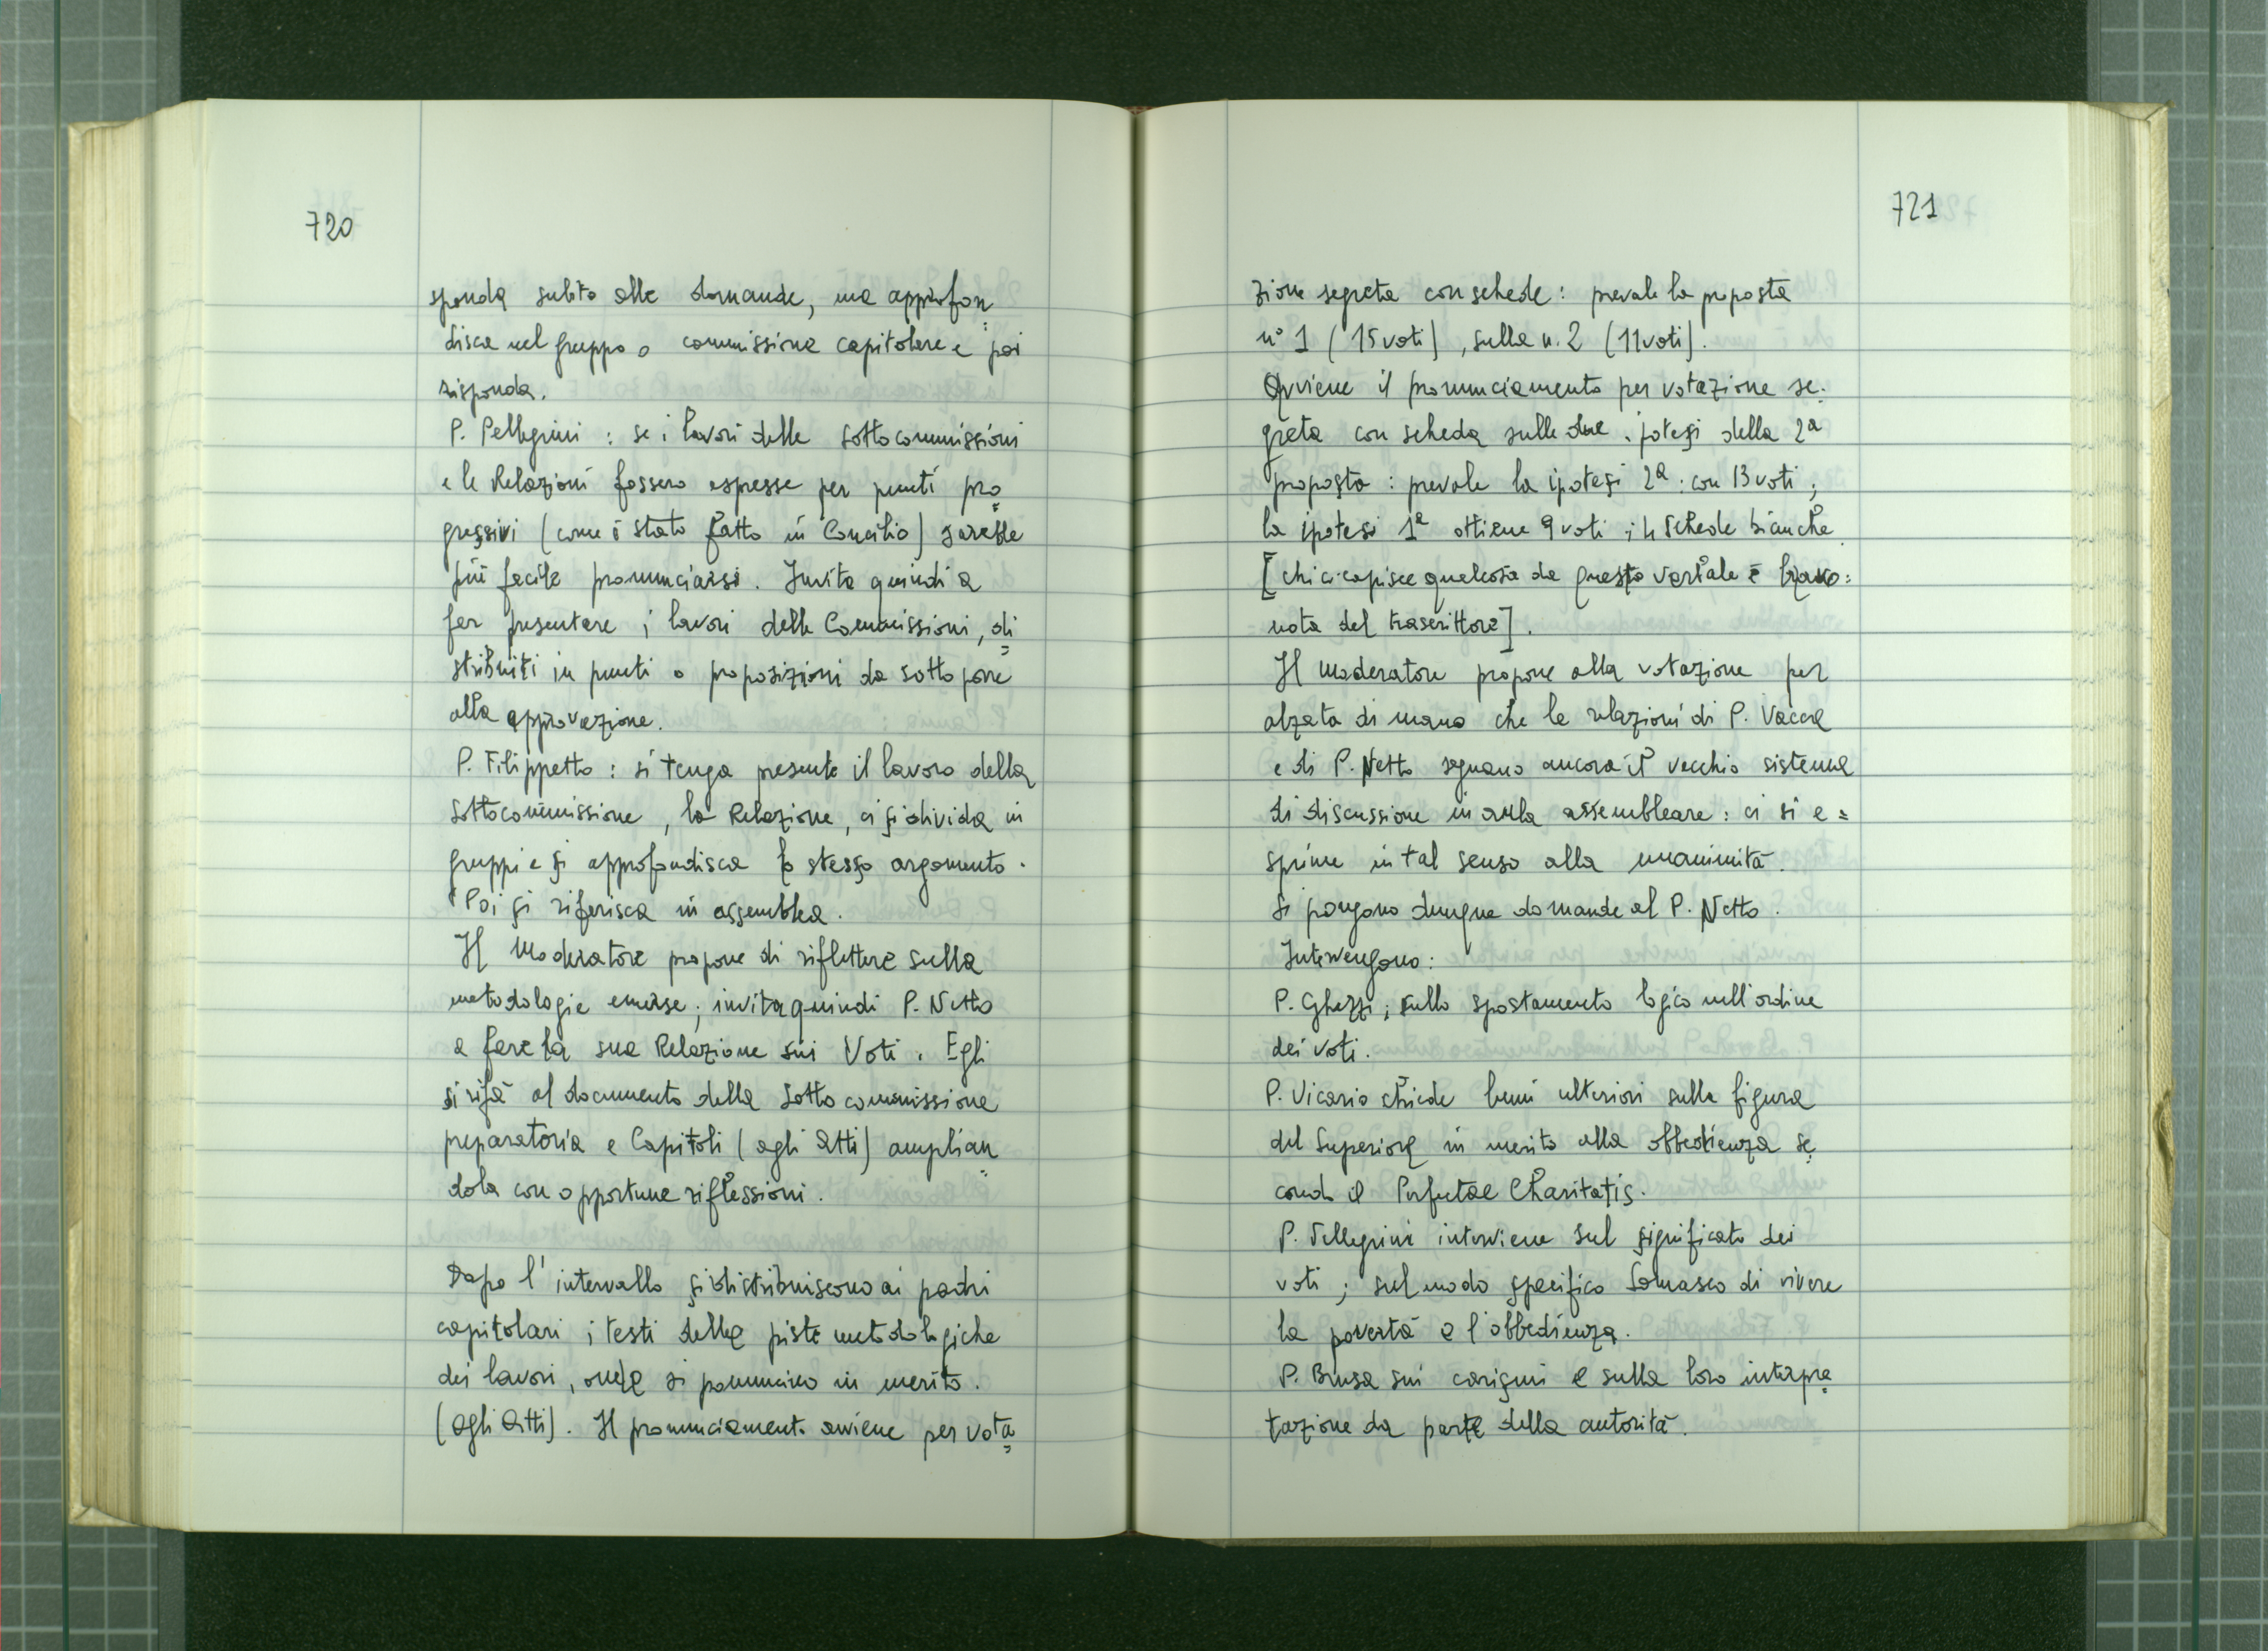 720
sponda subito alle domande, ma approfon
disca nel gruppo o commissione capitolare e poi
risponda.
P. Pellegrini : se i lavori delle sottocommissioni
e le Relazioni fossero espresse per punti pro
gressivi (come è stato fatto in Concilio) sarebbe
più facile pronunciarsi. Invita quindi a
far presentare i lavori delle Commissioni, di
stribuiti in punti o proposizioni da sottoporre
alla approvazione.
P. Filippetto : si tenga presente il lavoro della
Sottocommissione, la Relazione, ci si divida in
gruppi e si approfondisca lo stesso argomento.
Poi si riferisca in assemblea.
Il Moderatore propone di riflettere sulla
metodologie emerse; invita quindi P. Netto
a fare la sua Relazione sui Voti. Egli
si rifà al documento della Sottocommissione
preparatoria e Capitoli (agli Atti) amplian
dola con opportune riflessioni.
Dopo l'intervallo si distribuiscono ai padri
capitolari i testi delle piste metodologiche
dei lavori, onde si pronuncino in merito.
(agli Atti). Il pronunciamento avviene per vota
721
zione segreta con schede : prevale la proposta
n° 1 (15 voti), sulla n. 2 (11 voti).
Avviene il pronunciamento per votazione se
greta con scheda sulle due ipotesi della 2a
proposta : prevale la ipotesi 2a : con 13 voti ;
la ipotesi 1a ottiene 9 voti ; 4 schede bianche
[chi ci capisce qualcosa da questo verbale è bravo :
nota del trascrittore].
Il moderatore propone alla votazione per
alzata di mano che le relazioni di P. Vacca
e di P. Netto seguano ancora il vecchio sistema
di discussione in aula assembleare : ci si e=
sprime in tal senso alla unanimità.
Si pongono dunque domande al P. Netto.
Intervengono :
P. Ghezzi ; sullo spostamento logico nell'ordine
dei voti.
P. Vicario chiede lumi ulteriori sulla figura
del Superiore in merito alla obbedienza se
condo il Perfectae Charitatis.
P. Pellegrini interviene sul significato dei
voti ; sul modo specifico Somasco di vivere
la povertà e l'obbedienza.
P. Brusa sui carismi e sulla loro interpre
tazione da parte della autorità.